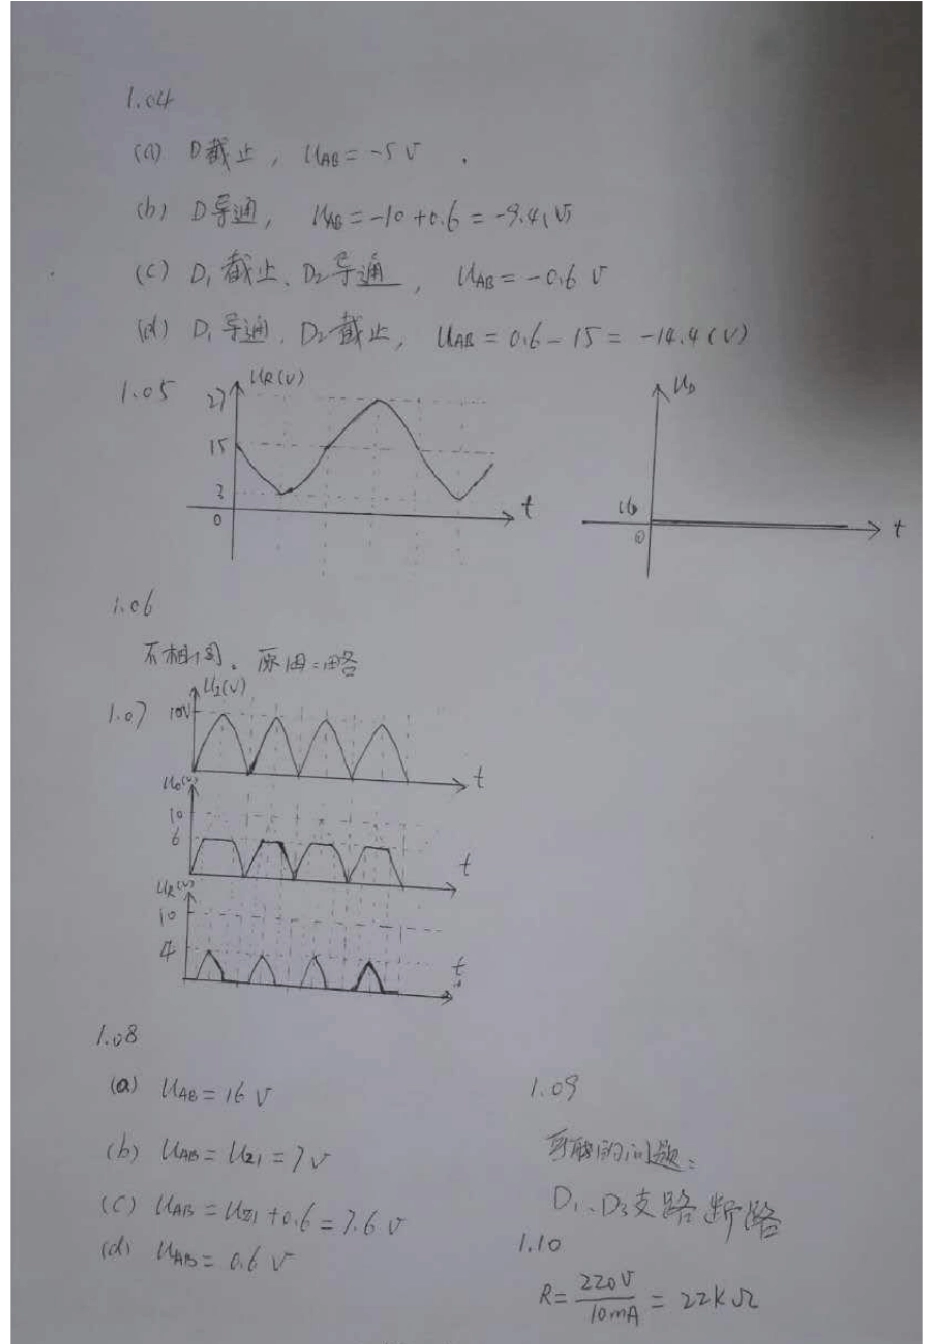 1.04
(a) D截止, UAB = -5V.
(b) D导通, UAB = -10+0.6 = -9.4(V)
(c) D1截止、D2导通, UAB = -0.6V
(d) D1导通、D2截止, UAB = 0.6-15 = -14.4(V)
1.05
UR(V)
27
15
3
0
t
UD
UD
0
t
1.06
不相同。原因=略
1.07
UI(V)
10V
t
UO(V)
10
6
t
UR(V)
10
4
t
1.08
(a) UAB = 16V
(b) UAB = UZ1 = 7V
(c) UAB = UZ1+0.6 = 7.6V
(d) UAB = 0.6V
1.09
可能的问题:
D1、D3支路断路
1.10
R = 220V/10mA = 22KΩ